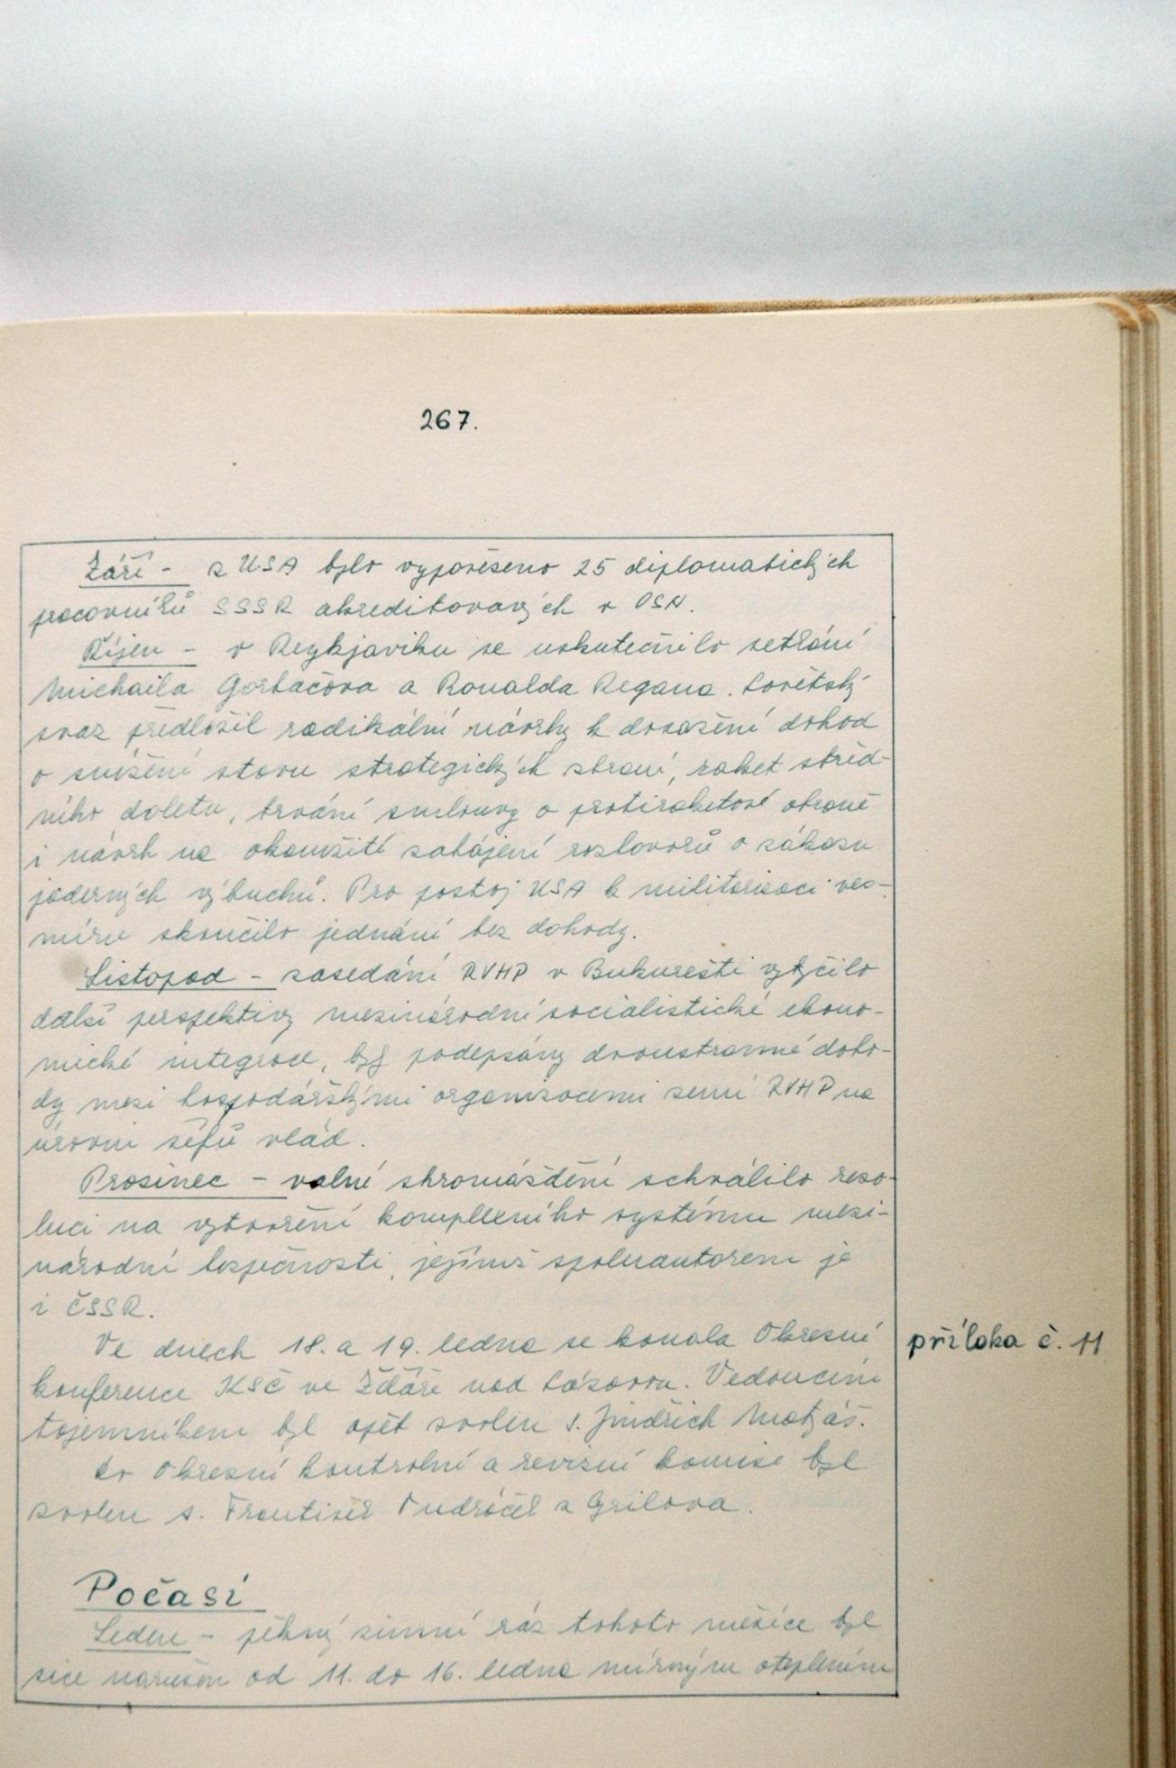 267.
Září - z USA bylo vypovězeno 25 diplomatických
pracovníků SSSR akreditovaných v OSN.
Říjen - v Reykjaviku se uskutečnilo setkání
Michaila Gorbačova a Ronalda Regana. Sovětský
svaz předložil radikální návrhy k dosažení dohod
o snížení stavu strategických zbraní, raket střed-
ního doletu, trvání smlouvy o protiraketové obraně
i návrh na okamžité zahájení rozhovorů o zákazu
jaderných výbuchů. Pro postoj USA k militarizaci ves-
míru skončilo jednání bez dohody.
Listopad - zasedání RVHP v Bukurešti vytyčilo
další perspektivy mezinárodní socialistické ekono-
mické integrace, byly podepsány dvoustranné doho-
dy mezi hospodářskými organizacemi zemí RVHP na
úrovni šéfů vlád.
Prosinec - valné shromáždění schválilo rezo-
luci na vytvoření komplexního systému mezi-
národní bezpečnosti, jejímž spoluautorem je
i ČSSR.
Ve dnech 18. a 19. ledna se konala Okresní
příloha č. 11
konference KSČ ve Žďáře nad Sázavou. Vedoucím
tajemníkem byl opět zvolen s. Jindřich Matyáš.
Do Okresní kontrolní a revizní komise byl
zvolen s. František Ondráček z Grilova.
Počasí
Leden - pěkný zimní ráz tohoto měsíce byl
sice narušen od 11. do 16. ledna mírným oteplením